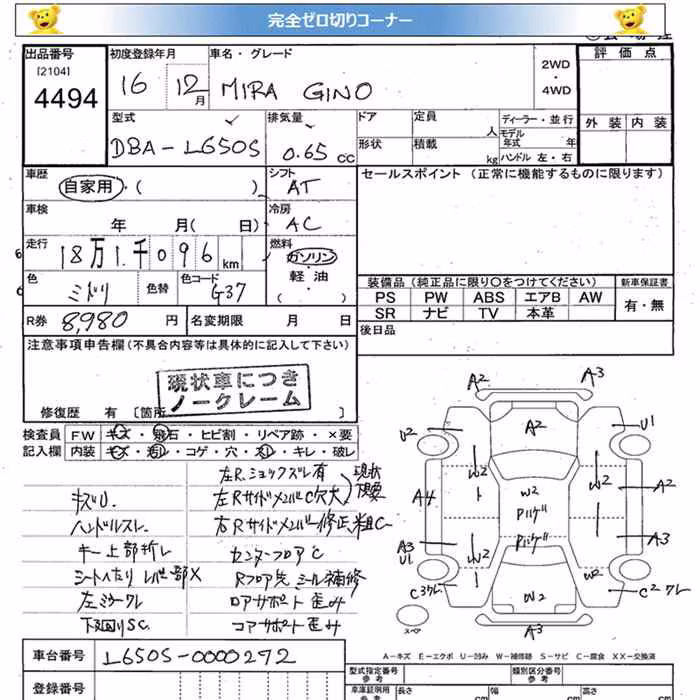 完全ゼロ切りコーナー
出品番号 初度登録年月 車名・グレード 評価点
[2104]
4494 16 12月 MIRA GINO 2WD・4WD
型式 排気量 ドア 定員 人 ディーラー・並行 外装 内装
DBA-L650S 0.65 CC 形状 積載 kg モデル年式 年
ハンドル 左・右
車歴 シフト セールスポイント (正常に機能するものに限ります)
自家用・( ) AT
車検 冷房
年 月( 日) AC
走行 燃料
18万1千096km ガソリン
軽・油
( )
色 色替 色コード 装備品 (純正品に限り〇をつけてください) 新車保証書
ミドリ G37 PS PW ABS エアB AW 有・無
SR ナビ TV 本革
R券 8,980 円 名変期限 月 日 後日品
注意事項申告欄 (不具合内容等は具体的に記入して下さい)
現状車につき
ノークレーム
修復歴 有 [箇所 ]
検査員 FW キズ・飛石・ヒビ割・リペア跡・×要
記入欄 内装 キズ・汚レ・コゲ・穴・スレ・キレ・破レ
左R.ショックズレ有
キズU. 左RサイドメンバーC穴大 現状
ハンドルスレ. 右Rサイドメンバー修正.粗C
キー上部折レ センターフロアC
シートヘタリ レバー部X Rフロア先 シール補修
左ミラークレ ロアサポート歪み
下廻りSC. コアサポート歪み
A2 A3
U2 A2 U1
W2 W2
A4 W2 A2
Pいゲ
A3 U1 W2 Pいゲ A3
W2
C3クレ W2 C2クレ
スペア A3
A-キズ E-エクボ U-凹み W-補修跡 S-サビ C-腐食 XX-交換済
車台番号 L650S-0000272
型式指定番号 参考 類別区分番号 参考
登録番号 車庫証明用 参考 長さ cm 幅 cm 高さ cm